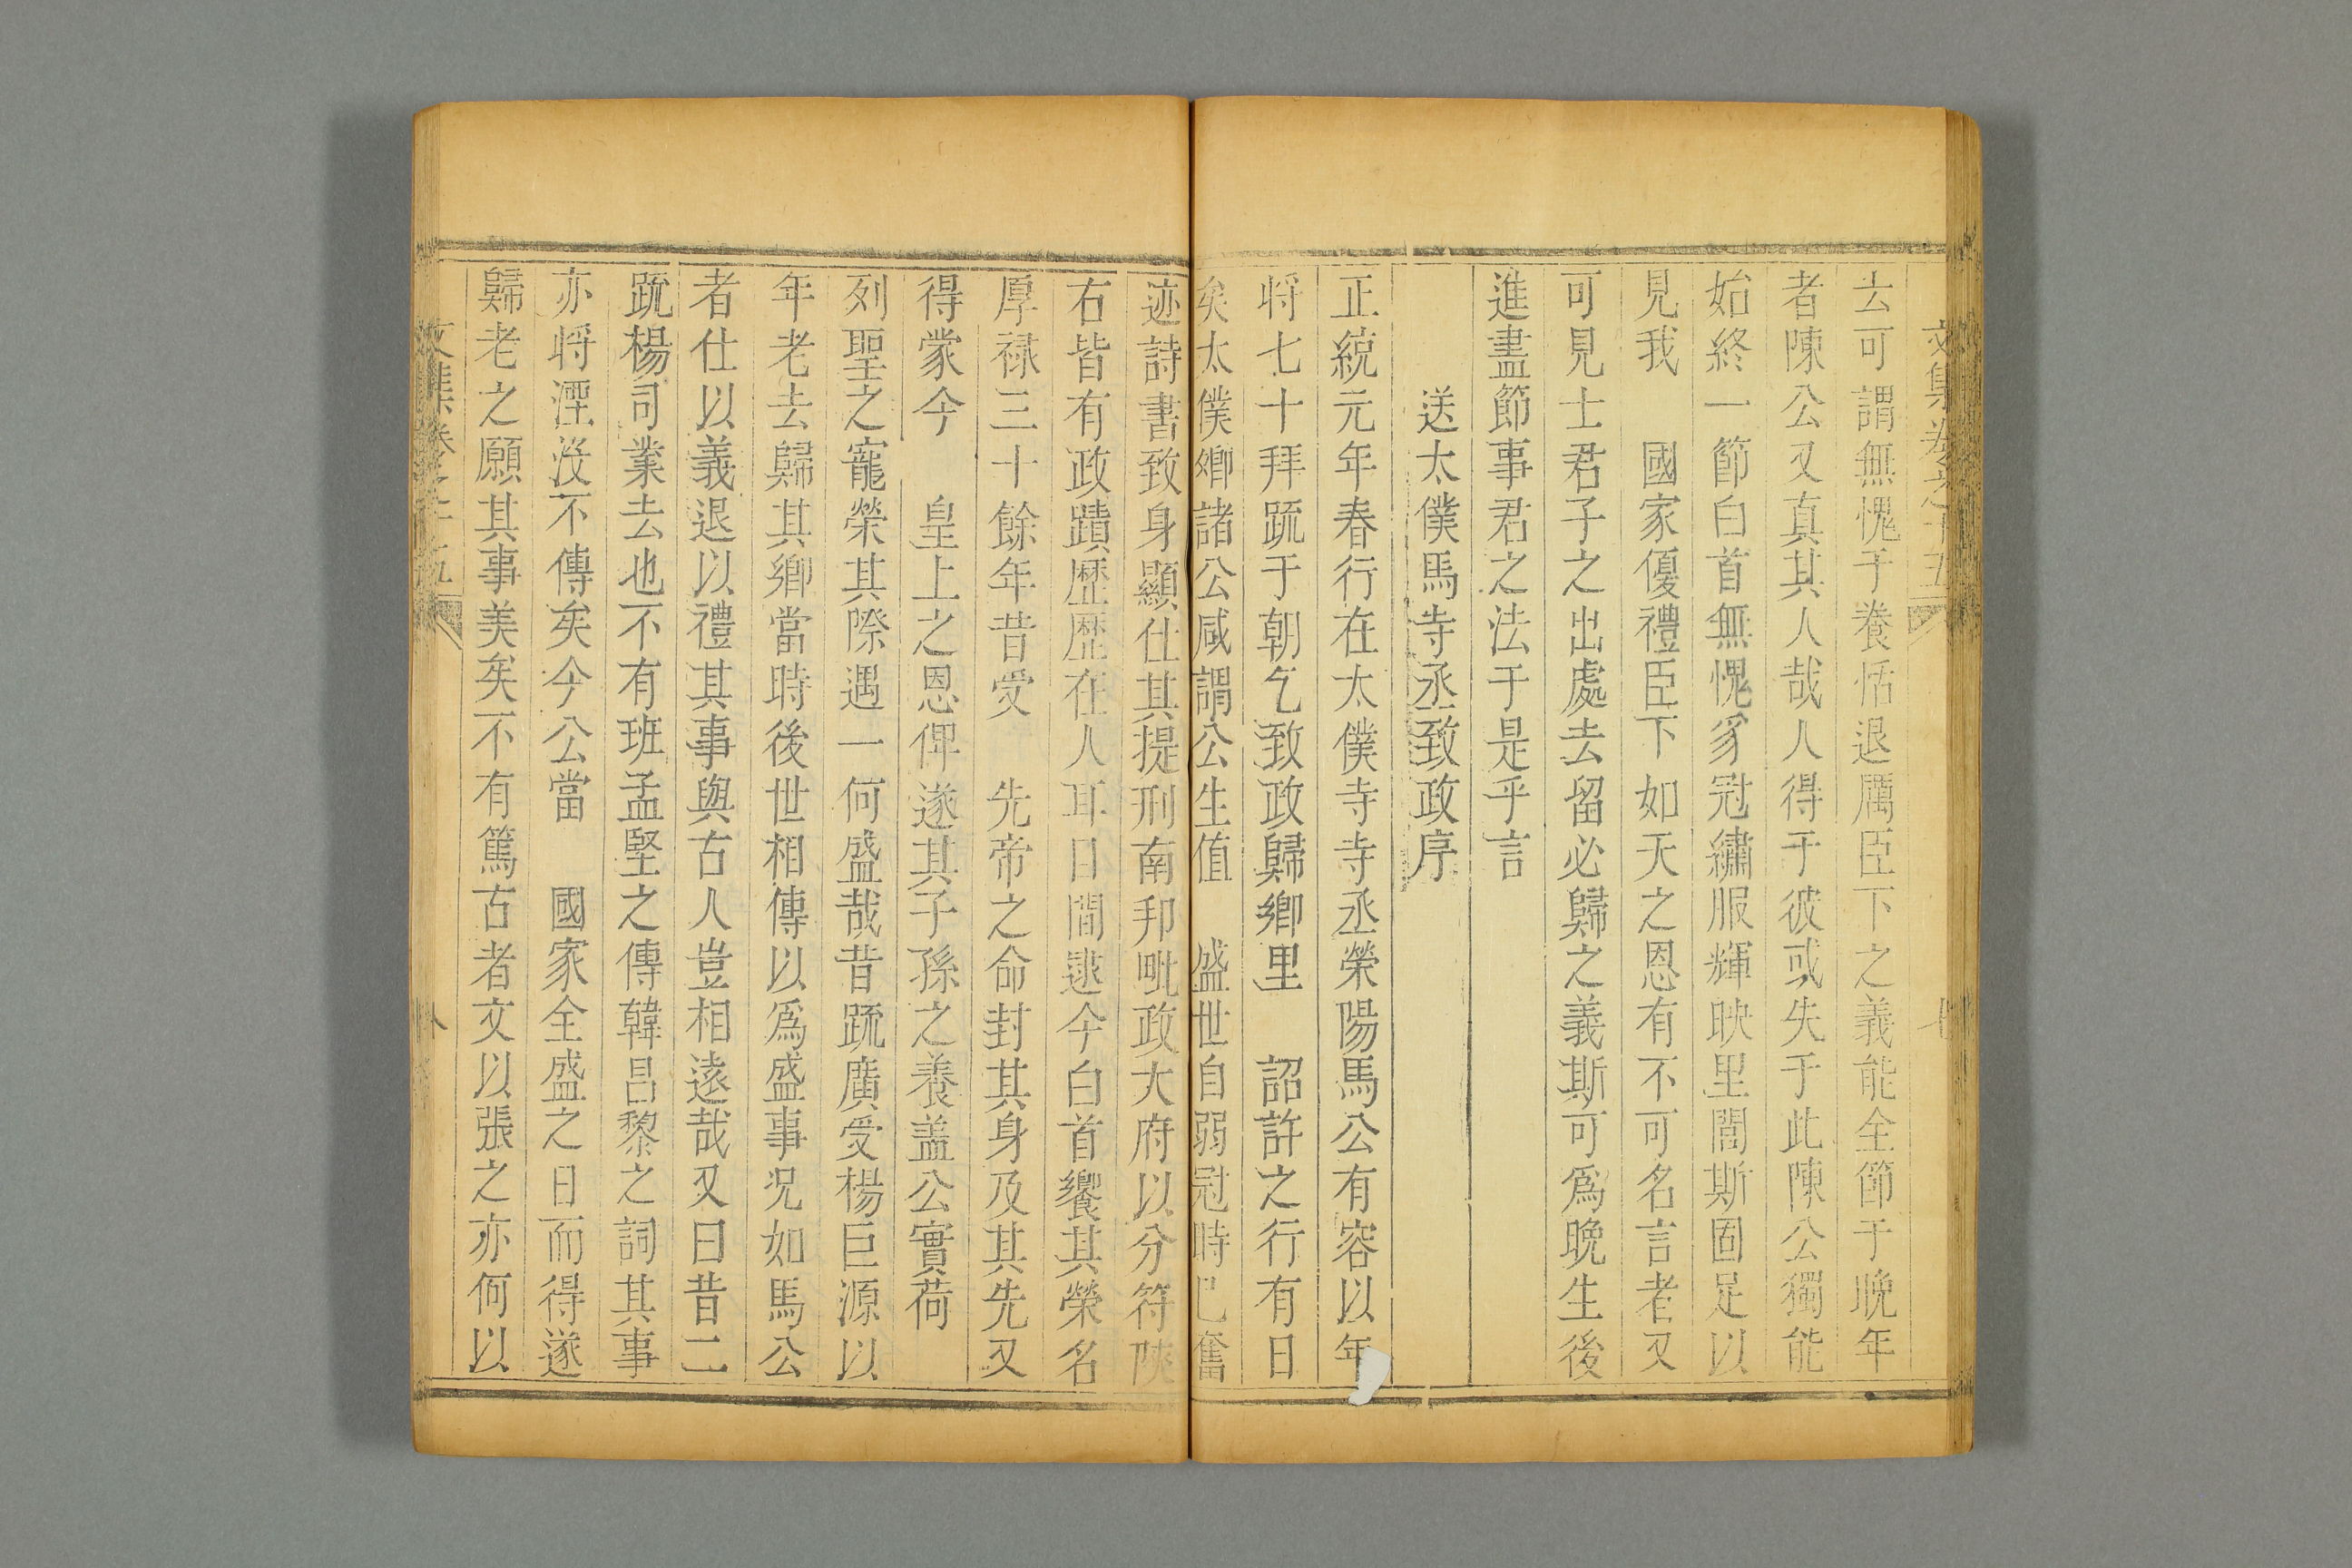 文集卷之十五 七
去可謂無愧于養恬退厲臣下之義能全節于晚年
者陳公又真其人哉人得于彼或失于此陳公獨能
始終一節白首無愧豸冠繡服輝映里閭斯固足以
見我 國家優禮臣下如天之恩有不可名言者又
可見士君子之出處去留必歸之義斯可爲晚生後
進盡節事君之法于是乎言
送太僕馬寺丞致政序
正統元年春行在太僕寺寺丞榮陽馬公有容以年
將七十拜疏于朝乞致政歸鄉里 詔許之行有日
矣太僕卿諸公咸謂公生值 盛世自弱冠時已奮
迹詩書致身顯仕其提刑南邦毗政大府以分符陝
右皆有政蹟歷歷在人耳目間逮今白首饗其榮名
厚禄三十餘年昔受 先帝之命封其身及其先又
得蒙今 皇上之恩俾遂其子孫之養盖公實荷
列聖之寵榮其際遇一何盛哉昔疏廣受楊巨源以
年老去歸其鄉當時後世相傳以爲盛事况如馬公
者仕以義退以禮其事與古人豈相遠哉又曰昔二
疏楊司業去也不有班孟堅之傳韓昌黎之詞其事
亦將湮没不傳矣今公當 國家全盛之日而得遂
歸老之願其事美矣不有篤古者文以張之亦何以
文集卷之十五 八